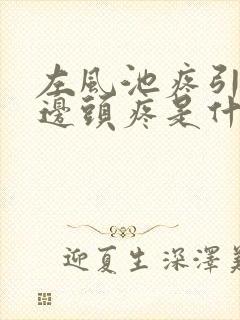 左風池疼引
邊頭疼是什
迎夏生深澤